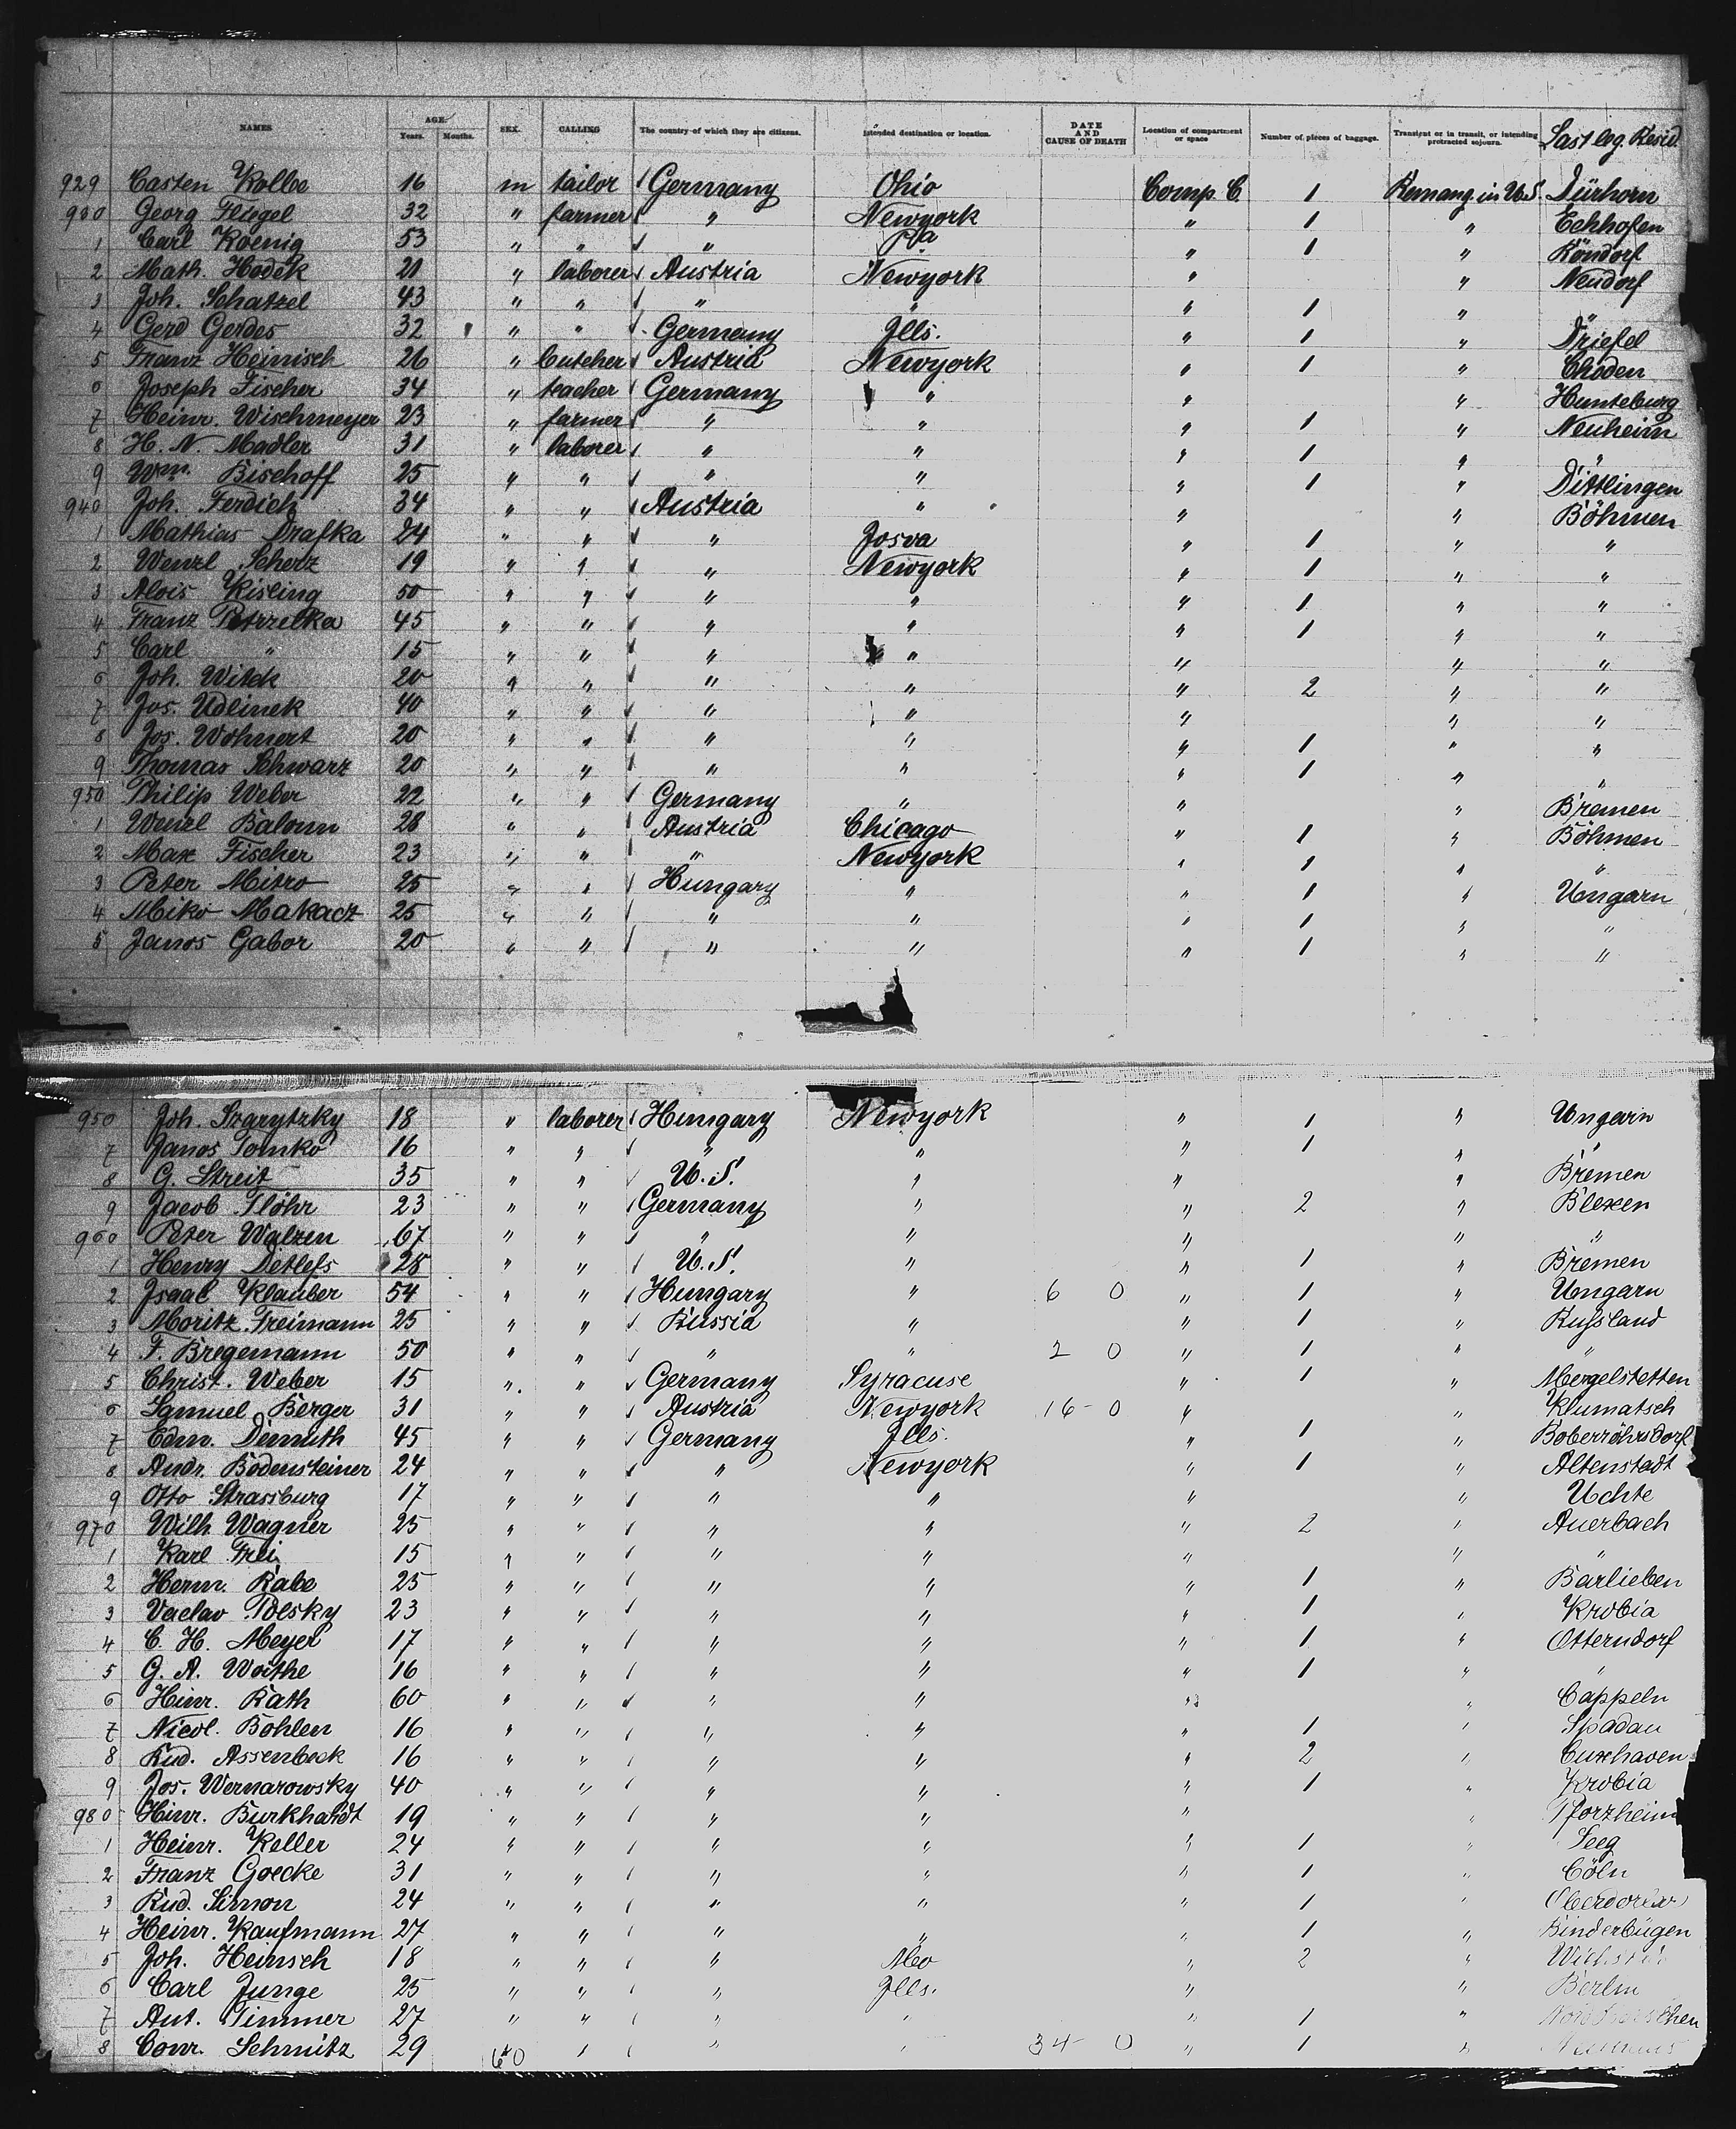 NAMES AGE. Years. Months. SEX. CALLING The country of which they are citizens. Intended destination or location. DATE AND CAUSE OF DEATH Location of compartment or space Number of pieces of baggage. Transient or in transit, or intending protracted sojourn. Last leg. Resid.
929 Casten Kolbe 16 m tailor Germany Ohio Comp. C. 1 Remang. in U.S. Dürhorn
930 Georg Fliegel 32 " farmer " Newyork " 1 " Echhofen
1 Carl Koenig 53 " " " Pa " 1 " Röndorf
2 Math. Hodek 21 " laborer Austria Newyork " " Neudorf
3 Joh. Schatzel 43 " " " " " 1 " "
4 Gerd Gerdes 32 " " Germany Ills. " 1 " Driefel
5 Franz Heinisch 26 " butcher Austria Newyork " 1 " Choden
6 Joseph Fischer 34 " teacher Germany " " " Hunteburg
7 Heinr. Wischmeyer 23 " farmer " " " 1 " Neuheim
8 H. N. Madler 31 " laborer " " " 1 " "
9 Wm. Bischoff 25 " " " " " 1 " Dittlingen
940 Joh. Ferdich 34 " " Austria " " " Böhmen
1 Mathias Drafka 24 " " " Josva " 1 " "
2 Wenzl Scherz 19 " " " Newyork " 1 " "
3 Alois Kisling 50 " " " " " 1 " "
4 Franz Petrzelka 45 " " " " " 1 " "
5 Carl " 15 " " " " " " "
6 Joh. Witek 20 " " " " " 2 " "
7 Jos. Udlinek 40 " " " " " " "
8 Jos. Wohnert 20 " " " " " 1 " "
9 Thomas Schwarz 20 " " " " " 1 " "
950 Philip Weber 22 " " Germany " " " Bremen
1 Wenzel Baloun 28 " " Austria Chicago " 1 " Böhmen
2 Max Fischer 23 " " " Newyork " 1 " "
3 Peter Mitro 25 " " Hungary " " 1 " Ungarn
4 Miko Makacz 25 " " " " " 1 " "
5 Janos Gabor 20 " " " " " 1 " "
950 Joh. Szarytzky 18 " laborer Hungary Newyork " 1 " Ungarn
7 Janos Tomko 16 " " " " " 1 " "
8 G. Streit 35 " " U.S. " " " Bremen
9 Jacob Flöhr 23 " " Germany " " 2 " Blexen
960 Peter Walzen 67 " " " " " " "
1 Henry Detlefs 28 " " U.S. " " 1 " Bremen
2 Isaac Klauber 54 " " Hungary " 6 0 " 1 " Ungarn
3 Moritz Freimann 25 " " Russia " " 1 " Russland
4 F. Bregemann 50 " " " " 2 0 " 1 " "
5 Christ. Weber 15 " " Germany Syracuse " 1 " Mergelstetten
6 Samuel Berger 31 " " Austria Newyork 16 - 0 " " Klumatsch
7 Edw. Demuth 45 " " Germany Ills. " 1 " Boberröhrsdorf
8 Andr. Bodensteiner 24 " " " Newyork " 1 " Altenstadt
9 Otto Strassburg 17 " " " " " " Uchte
970 Wilh. Wagner 25 " " " " " 2 " Auerbach
1 Karl Frei 15 " " " " " " "
2 Herm. Rabe 25 " " " " " 1 " Barlieben
3 Vaclav Polsky 23 " " " " " 1 " Krobia
4 C. H. Meyer 17 " " " " " 1 " Otterndorf
5 G. A. Woithe 16 " " " " " 1 " "
6 Hinr. Rath 60 " " " " " " Cappeln
7 Nicol. Bohlen 16 " " " " " 1 " Spadau
8 Rud. Assenbeck 16 " " " " " 2 " Cuxhaven
9 Jos. Wernarowsky 40 " " " " " 1 " Krobia
980 Hinr. Burkhardt 19 " " " " " " Pforzheim
1 Heinr. Keller 24 " " " " " 1 " Seeg
2 Franz Goecke 31 " " " " " 1 " Cöln
3 Rud. Simon 24 " " " " " 1 "
4 Heinr. Kaufmann 27 " " " " " 1 " Binderbügen
5 Joh. Heinsch 18 " " " Mo " 2 "
6 Carl Junge 25 " " " Ills. " " Berlin
7 Ant. Timmer 27 " " " " " 1 "
8 Conr. Schmitz 29 60 " " " 34 - 0 " 1 "